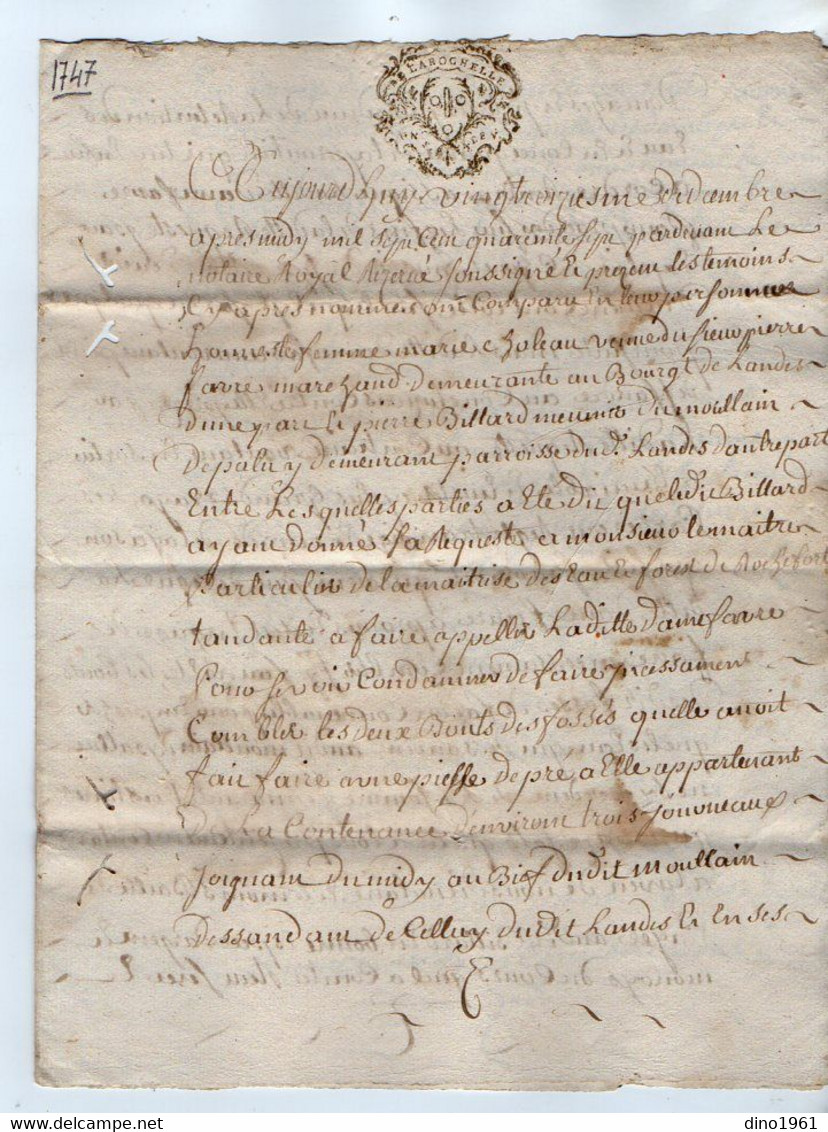 1747
LAROCHELLE
UN SOL
Aujourdhuy vingtroiziesme decembre
apresmidy mil sept cent quarente sept pardevant Le
notaire Royal Rezervé soussigné et present les temoins
Cy apres nommés ont Comparu En leur personnes
honneste femme marie choleau veuve du sieur pierre
favre marchand demeurante au Bourgt de Landes
Dune part Et pierre Billard meunier du moullain
De palu y demeurant parroisse du dt. Landes dautre part
Entre Les quelles parties a Eté dit que ledit Billard
ayant donné sa Requeste a monsieur lemaitre
particulier de la maitrise des Eau Et forest de Rochefort
tandante a faire appeller Laditte dame favre
pour se voir Condamner de faire
Combler les deux Bouts des fossés quelle avoit
fait faire a une piesse de pré a Elle appartenant
de La Contenance denviront trois journeaux
Joignant du midy au Bief du dit moullain
Dessandant de Celluy du dit Landes Et En ses
dino1961